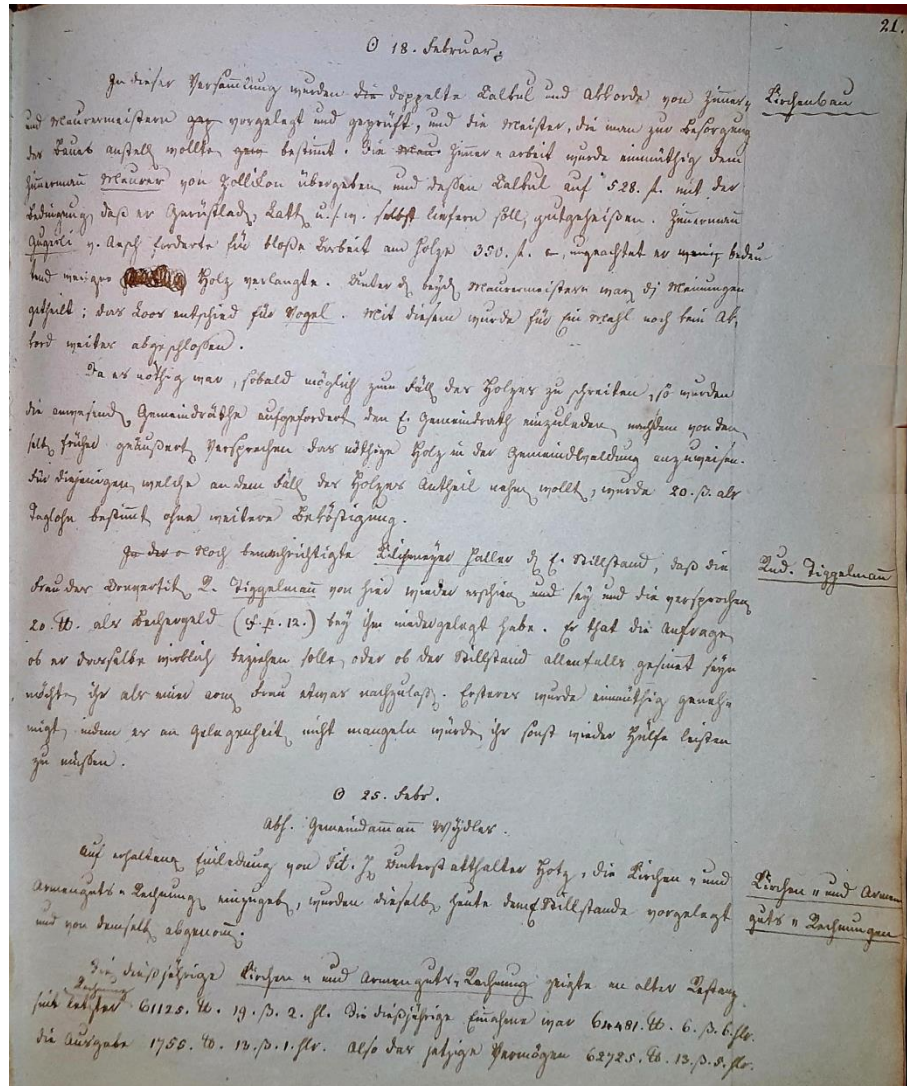 21.
☉ 18. Februar.
In dieser Versammlung wurden die doppelte Calcul und Akkorde von Zimmer-
Kirchenbau
und Maurermeistern vorgelegt und geprüft, und die Meister, die man zur Besorgung
des Baues anstell wollte bestimmt. Die Mau Zimmer-arbeit wurde einmüthig dem
Zimmermann Maurer von Zollikon übergeben und dessen Calcul auf 528. f. mit der
Bedingung, daß er Gerüstlad, Latt u.s.w. selbst liefern soll, gutgeheißen. Zimmermann
Gugerli v. Aesch forderte für bloße Arbeit am Holze 350. f. ungeachtet er wenig bedeu
tend weniger Holz verlangte. Unter d beyd Maurermeistern war d Meinungen
getheilt; das Loos entschied für Vogel. Mit diesem wurde für ein Mahl noch kein Ak-
kord weiter abgeschloßen.
Da es nöthig war, sobald möglich zum Fäll des Holzes zu schreiten, so wurden
die anwesend Gemeindräthe aufgefordert den E. Gemeindrath einzuladen, nach dem von den
selb früher geäußert Versprechen das nöthige Holz in der Gemeindwaldung anzuweisen.
Für diejenigen, welche an dem Fäll des Holzes Antheil nehm wollt, wurde 20. ß. als
Taglohn bestimmt ohne weitere Beköstigung.
In der Noch benachrichtigte Kilchmeyer Haller d E. Stillstand, daß die
Rud. Tiggelmann
Frau des Convertit R. Tiggelmann von hier wieder erschien und sey und die versprochen
20. ℔. als Bechergeld (cf. p. 12.) bey ihm niedergelegt habe. Er that die Anfrage,
ob er dasselbe wirklich beziehen solle, oder ob der Stillstand allenfalls gesinnt seyn
möchte, ihr als einer arm Frau etwas nachzulaß. Ersteres wurde einmüthig geneh-
migt, indem es an Gelegenheit nicht mangeln würde, ihr sonst wieder Hülfe leisten
zu müssen.
☉ 25. Febr.
Abs. Gemeindammann Wydler.
Auf erhaltene Einladung von Tit. H Unterstatthalter Hotz, die Kirchen- und
Kirchen- und Armen
Armenguts-Rechnung einzugeb, wurden dieselb heute dem E. Stillstande vorgelegt
guts-Rechnungen
und von demselb abgenomm.
Die dießjährige Kirchen- und Armenguts-Rechnung zeigte an alter Restanz
Rechnung
seit letzter 61125. ℔. 19. ß. 2. hl. Die dießjährige Einnahme war 64481. ℔. 6. ß. 6. hlr.
die Ausgabe 1755. ℔. 13. ß. 1. hlr. also das jetzige Vermögen 62725. ℔. 13. ß. 5. hlr.